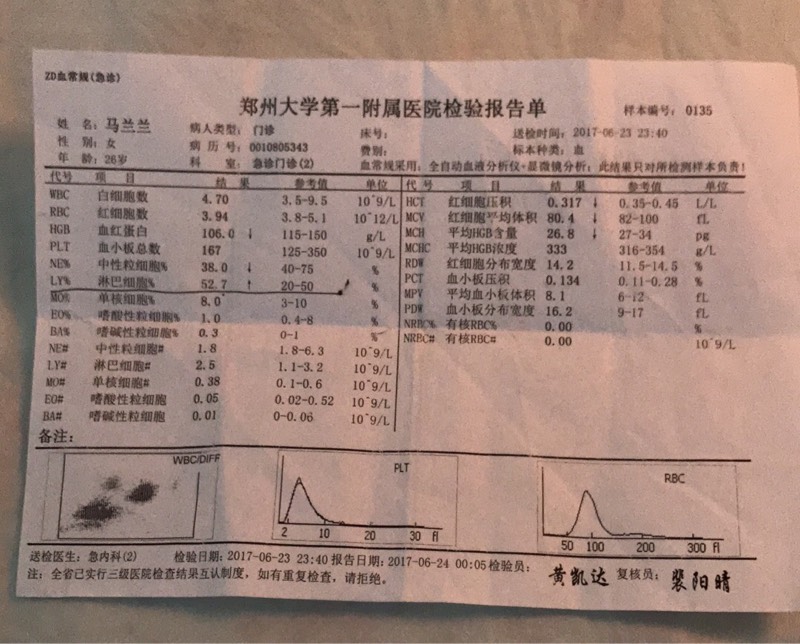 ZD血常规(急诊)
郑州大学第一附属医院检验报告单
样本编号: 0135
姓 名: 马兰兰 病人类型: 门诊 床号: 送检时间: 2017-06-23 23:40
性 别: 女 病 历 号: 0010805343 费别: 标本种类: 血
年 龄: 26岁 科 室: 急诊门诊(2) 血常规采用: 全自动血液分析仪+显微镜分析; 此结果只对所检测样本负责!
代号 项 目 结 果 参考值 单位 代 号 项 目 结 果 参考值 单位
WBC 白细胞数 4.70 3.5-9.5 10^9/L HCT 红细胞压积 0.317 ↓ 0.35-0.45 L/L
RBC 红细胞数 3.94 3.8-5.1 10^12/L MCV 红细胞平均体积 80.4 ↓ 82-100 fL
HGB 血红蛋白 106.0 ↓ 115-150 g/L MCH 平均HGB含量 26.8 ↓ 27-34 pg
PLT 血小板总数 167 125-350 10^9/L MCHC 平均HGB浓度 333 316-354 g/L
NE% 中性粒细胞% 38.0 ↓ 40-75 % RDW 红细胞分布宽度 14.2 11.5-14.5 %
LY% 淋巴细胞% 52.7 ↑ 20-50 % PCT 血小板压积 0.134 0.11-0.28 %
MO% 单核细胞% 8.0 3-10 % MPV 平均血小板体积 8.1 6-12 fL
EO% 嗜酸性粒细胞% 1.0 0.4-8 % PDW 血小板分布宽度 16.2 9-17 fL
BA% 嗜碱性粒细胞% 0.3 0-1 % NRBC% 有核RBC% 0.00 %
NE# 中性粒细胞# 1.8 1.8-6.3 10^9/L NRBC# 有核RBC# 0.00 10^9/L
LY# 淋巴细胞# 2.5 1.1-3.2 10^9/L
MO# 单核细胞# 0.38 0.1-0.6 10^9/L
EO# 嗜酸性粒细胞 0.05 0.02-0.52 10^9/L
BA# 嗜碱性粒细胞 0.01 0-0.06 10^9/L
备注:
WBC/DIFF PLT RBC
2 10 20 30 fl 50 100 200 300 fl
送检医生: 急内科(2) 检验日期: 2017-06-23 23:40 报告日期: 2017-06-24 00:05 检验员: 黄凯达 复核员: 裴阳晴
注: 全省已实行三级医院检查结果互认制度, 如有重复检查, 请拒绝。